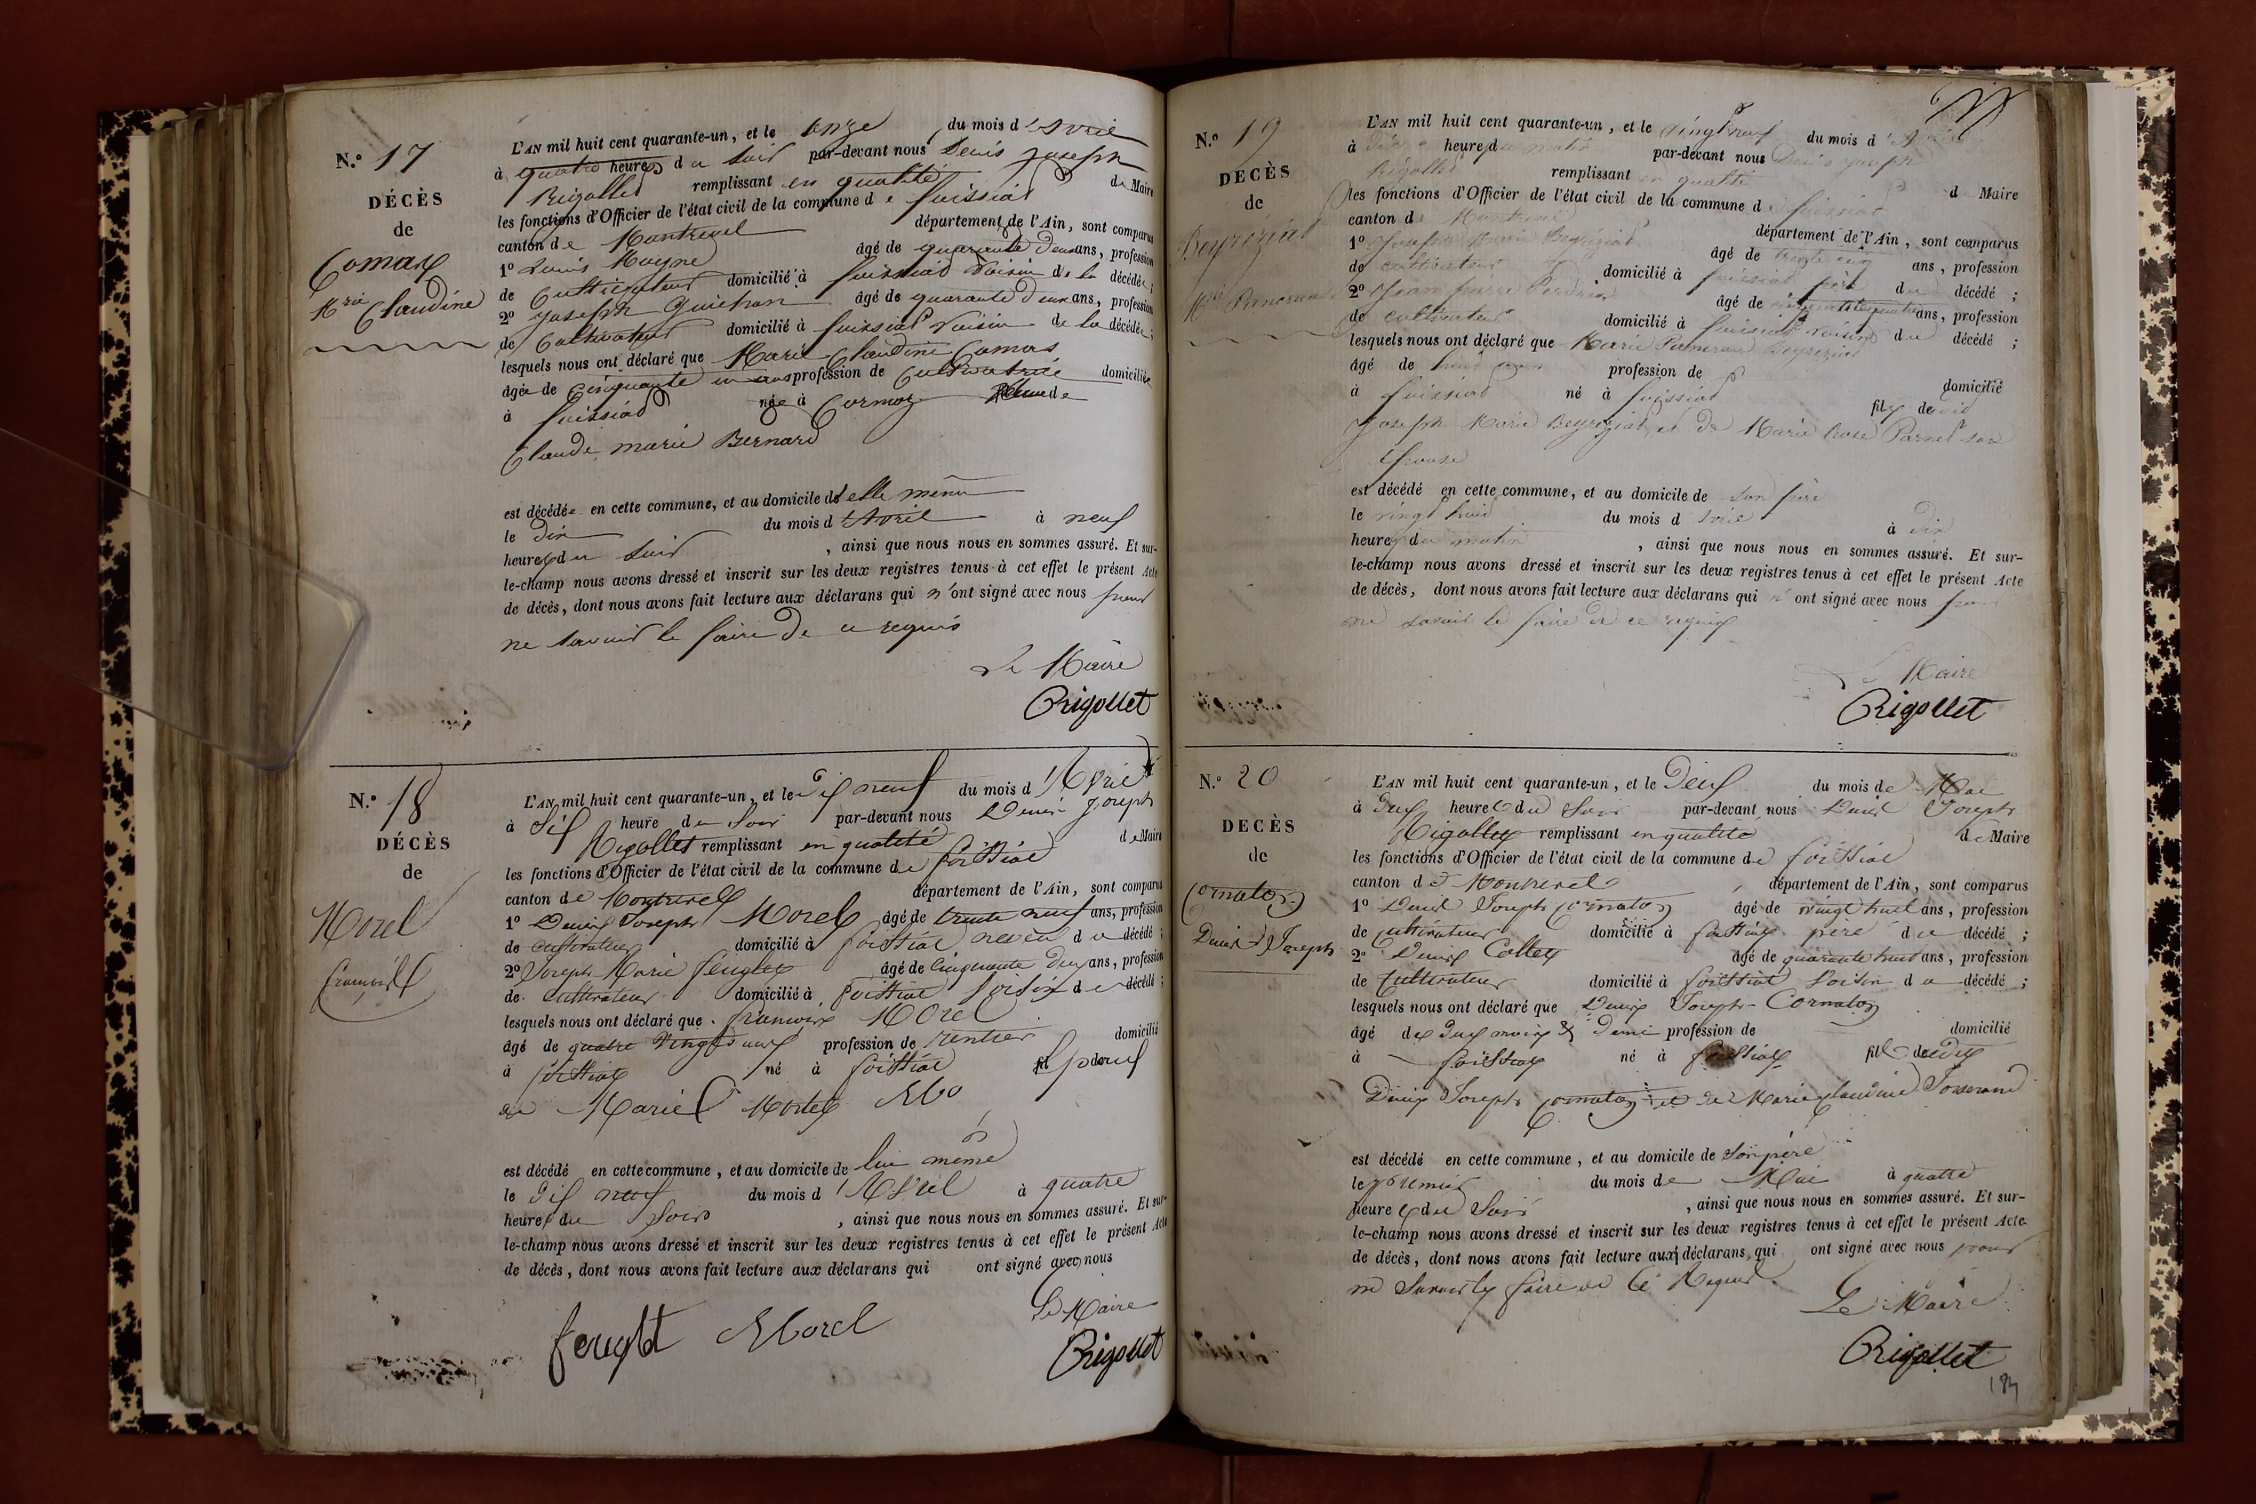 N.° 17
DÉCÈS
de
Comas
Mrie Claudine
L'AN mil huit cent quarante-un, et le onze du mois d'Avril
à quatre heures du soir par-devant nous Denis Joseph
Rigollet remplissant en qualité de Maire
les fonctions d'Officier de l'état civil de la commune de foissiat
canton de Montrevel département de l'Ain, sont comparus
1° Louis Moyne âgé de quarante deux ans, profession
de Cultivateur domicilié à foissiat voisin de la décédée;
2° Joseph Guichon âgé de quarante deux ans, profession
de Cultivateur domicilié à foissiat Voisin de la décédée;
lesquels nous ont déclaré que Marie Claudine Comas
âgée de Cinquante un ans profession de Cultivatrice domiciliée
à foissiat née à Cormoz Veuve de
Claude marie Bernard
est décédée en cette commune, et au domicile d'elle même
le Dix du mois d'Avril à neuf
heures du soir, ainsi que nous nous en sommes assuré. Et sur-
le-champ nous avons dressé et inscrit sur les deux registres tenus à cet effet le présent Acte
de décès, dont nous avons fait lecture aux déclarans qui n'ont signé avec nous pour
ne savoir le faire de ce requis
Le Maire
Rigollet
N.° 18
DÉCÈS
de
Morel
françois
L'AN mil huit cent quarante-un, et le Dix neuf du mois d'Avril
à Six heure du Soir par-devant nous Denis Joseph
Rigollet remplissant en qualité de Maire
les fonctions d'Officier de l'état civil de la commune de foissiat
canton de Montrevel département de l'Ain, sont comparus
1° Denis Joseph Morel âgé de trente neuf ans, profession
de cultivateur domicilié à foissiat neveu du décédé;
2° Joseph Marie feuglet âgé de Cinquante deux ans, profession
de Cultivateur domicilié à foissiat Voisin du décédé;
lesquels nous ont déclaré que françois Morel
âgé de quatre Vingts ans profession de rentier domicilié
à foissiat né à foissiat Epoux
de Marie
est décédé en cette commune, et au domicile de lui même
le Dix neuf du mois d'Avril à quatre
heures du Soir, ainsi que nous nous en sommes assuré. Et sur-
le-champ nous avons dressé et inscrit sur les deux registres tenus à cet effet le présent Acte
de décès, dont nous avons fait lecture aux déclarans qui ont signé avec nous
Le Maire
feuglet Morel
Rigollet
N.° 19
DECÈS
de
Beyréziat
Mrie
L'AN mil huit cent quarante-un, et le vingt neuf du mois d'Avril
à heures du matin par-devant nous Denis Joseph
Rigollet remplissant en qualité de Maire
les fonctions d'Officier de l'état civil de la commune de foissiat
canton de Montrevel département de l'Ain, sont comparus
1° Joseph Marie Beyréziat âgé de trente cinq ans, profession
de cultivateur domicilié à foissiat père du décédé;
2° Jean pierre âgé de ans, profession
de cultivateur domicilié à foissiat voisin du décédé;
lesquels nous ont déclaré que Marie Beyreziat
âgé de profession de domicilié
à foissiat né à foissiat fils de
Joseph Marie Beyréziat, et de Marie Rose son
Epouse
est décédé en cette commune, et au domicile de son père
le vingt huit du mois d'avril à Dix
heures du matin, ainsi que nous nous en sommes assuré. Et sur-
le-champ nous avons dressé et inscrit sur les deux registres tenus à cet effet le présent Acte
de décès, dont nous avons fait lecture aux déclarans qui n'ont signé avec nous pour
ne savoir le faire de ce requis
Le Maire
Rigollet
N.° 20
DECÈS
de
Cornaton
Denis Joseph
L'AN mil huit cent quarante-un, et le Deux du mois de Mai
à Deux heures du Soir par-devant nous Denis Joseph
Rigollet remplissant en qualité de Maire
les fonctions d'Officier de l'état civil de la commune de foissiat
canton de Montrevel département de l'Ain, sont comparus
1° Denis Joseph Cornaton âgé de vingt huit ans, profession
de Cultivateur domicilié à foissiat père du décédé;
2° Denis Collet âgé de quarante huit ans, profession
de Cultivateur domicilié à foissiat Voisin du décédé;
lesquels nous ont déclaré que Denis Joseph Cornaton
âgé de Deux mois & Demi profession de domicilié
à foissiat né à foissiat fils dudit
Denis Joseph Cornaton et de Marie Claudine Josserand
est décédé en cette commune, et au domicile de Son père
le premier du mois de Mai à quatre
heures du Soir, ainsi que nous nous en sommes assuré. Et sur-
le-champ nous avons dressé et inscrit sur les deux registres tenus à cet effet le présent Acte
de décès, dont nous avons fait lecture aux déclarans qui ont signé avec nous pour
ne Savoir le faire de ce Requis
Le Maire
Rigollet
184